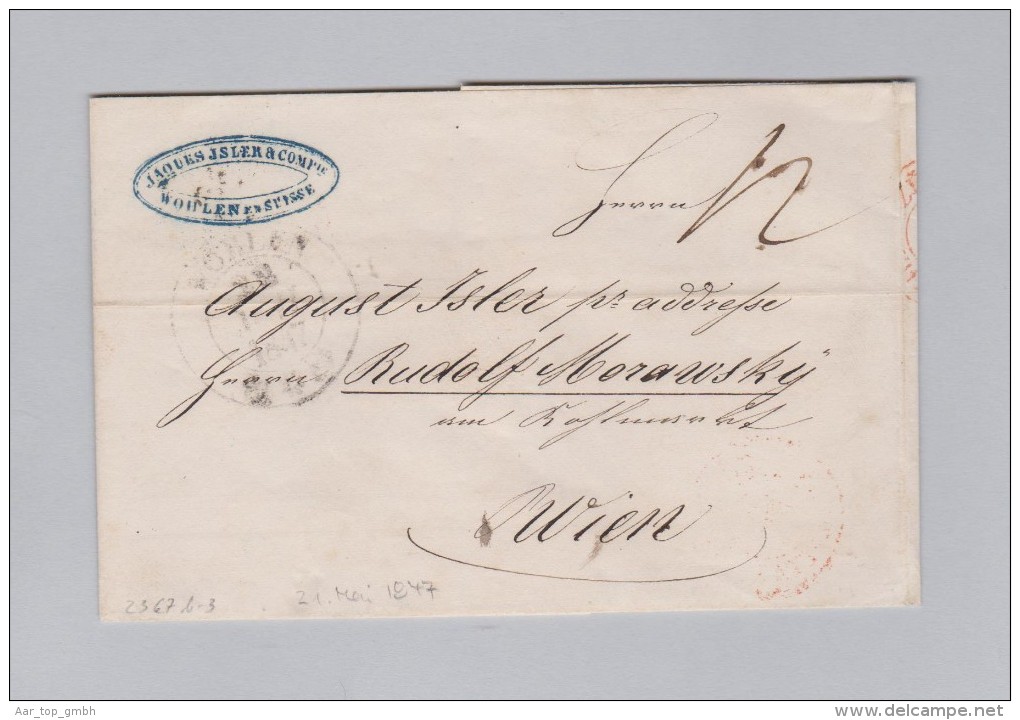 JAQUES ISLER & COMPIE
WOHLEN EN SUISSE
WOHLEN
Herrn
12
August Isler pr. addresse
Herrn Rudolf Morawsky
am Kohlmarkt
Wien
2367 b-3
21. Mai 1847
Aar_top_gmbh
delcampe.net